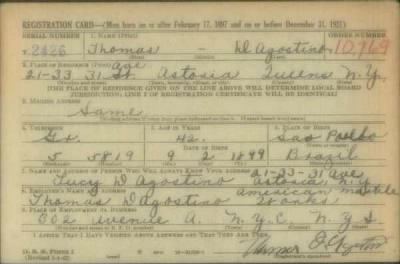 REGISTRATION CARD—(Men born on or after February 17, 1897 and on or before December 31, 1921)
SERIAL NUMBER 1. NAME (Print) ORDER NUMBER
T 2426 Thomas — D'Agostino 10,769
2. PLACE OF RESIDENCE (Print) ave
21-33 31 St. Astoria Queens N.Y.
(Number and street) (Town, township, village, or city) (County) (State)
[THE PLACE OF RESIDENCE GIVEN ON THE LINE ABOVE WILL DETERMINE LOCAL BOARD
JURISDICTION; LINE 2 OF REGISTRATION CERTIFICATE WILL BE IDENTICAL]
3. MAILING ADDRESS
Same
4. TELEPHONE 5. AGE IN YEARS 6. PLACE OF BIRTH
42 Sao Paulo
5 5819 9 2 1899 Brazil
7. NAME AND ADDRESS OF PERSON WHO WILL ALWAYS KNOW YOUR ADDRESS 21-33-31 ave
Lucy D'Agostino Astoria N.Y.
8. EMPLOYER'S NAME AND ADDRESS American
Thomas D'Agostino
9. PLACE OF EMPLOYMENT OR BUSINESS
602 Avenue A. N.Y.C. N.Y.S
I AFFIRM THAT I HAVE VERIFIED ABOVE ANSWERS AND THAT THEY ARE TRUE.
D. S. S. Form 1